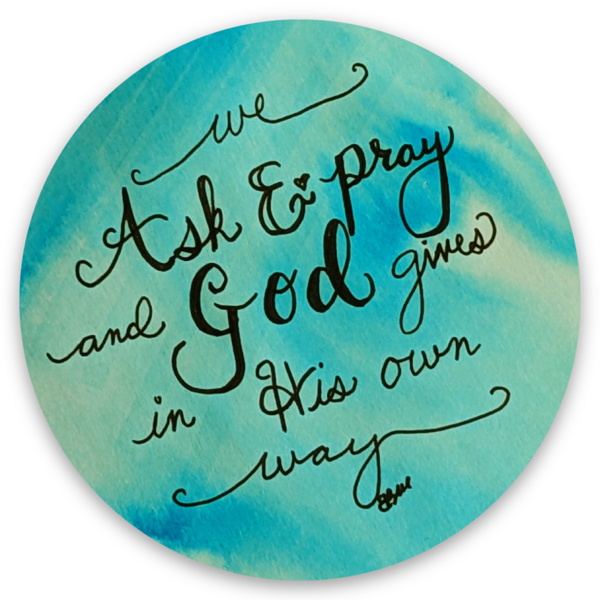 we
Ask & pray
and God gives
in His own
way